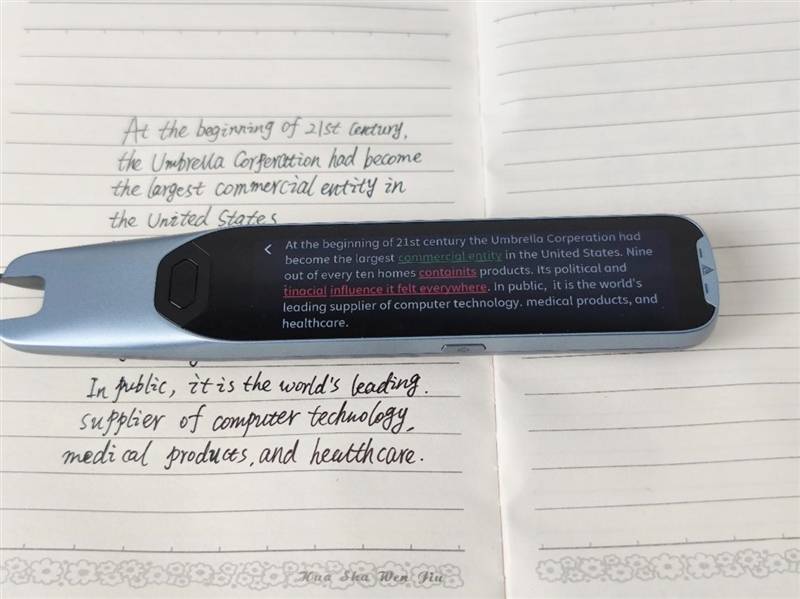 At the beginning of 21st Century,
the Umbrella Corperation had become
the largest commercial entity in
the United States
At the beginning of 21st century the Umbrella Corperation had
become the largest commercial entity in the United States. Nine
out of every ten homes containits products. Its political and
tinacial influence it felt everywhere. In public, it is the world's
leading supplier of computer technology. medical products, and
healthcare.
In public, it is the world's leading.
supplier of computer technology,
medical products, and healthcare.
Hua Sha Wen Jiu